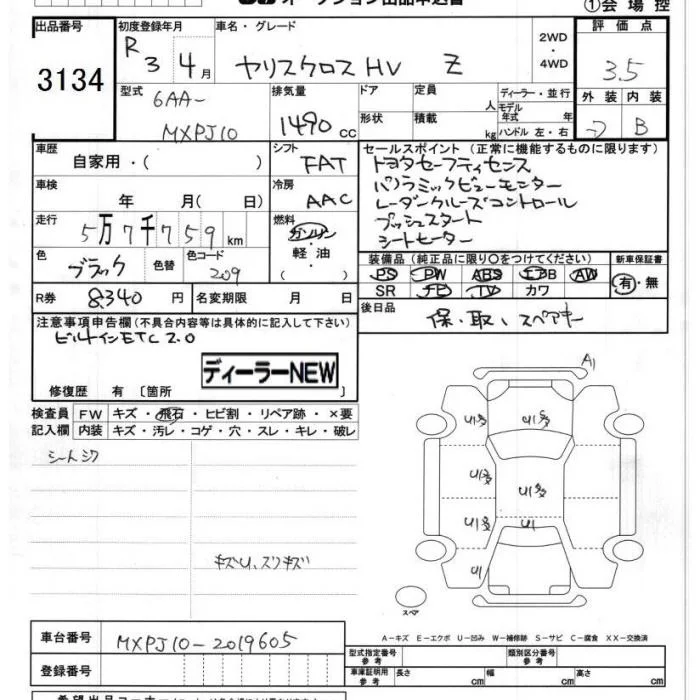 オークション出品申込書
①会場控
出品番号
3134
初度登録年月
R 3 4月
車名・グレード
ヤリスクロスHV Z
2WD
・
4WD
評価点
3.5
外装 内装
B
型式
6AA-
MXPJ10
排気量
1490 cc
ドア
形状
定員
人
積載
kg
ディーラー・並行
モデル
年式 年
ハンドル 左・右
車歴
自家用・( )
シフト
FAT
車検
年 月( 日)
冷房
AAC
走行
5万7千759km
燃料
ガソリン
・
軽油
( )
色
ブラック
色替
色コード
209
R券
8,340円
名変期限 月 日
セールスポイント (正常に機能するものに限ります)
トヨタセーフティセンス
パノラミックビューモニター
レーダークルーズコントロール
プッシュスタート
シートヒーター
装備品 (純正品に限り○をつけてください)
PS PW ABS エアB AW
SR ナビ TV カワ
新車保証書
有・無
後日品
保・取、スペアキー
注意事項申告欄 (不具合内容等は具体的に記入して下さい)
ビルトインETC2.0
ディーラーNEW
修復歴 有〔箇所
検査員
記入欄
FW キズ・飛石・ヒビ割・リペア跡・×要
内装 キズ・汚レ・コゲ・穴・スレ・キレ・破レ
シートシワ
キズU、スリキズ
A1
U1多 U1多
U1多
U1多
U1多 U1
U1
スペア
A-キズ E-エクボ U-凹み W-補修跡 S-サビ C-腐食 XX-交換済
車台番号
MXPJ10-2019605
登録番号
型式指定番号
参考
類別区分番号
参考
車庫証明用
参考
長さ cm 幅 cm 高さ cm